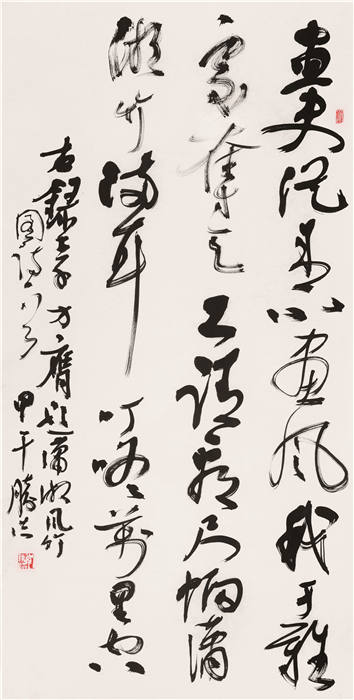 畫史從来不畫風我于難
處奪天工請看尺幅瀟
湘竹滿耳叮咚萬里空
右録李方膺題瀟湘風竹
圖詩一首甲午